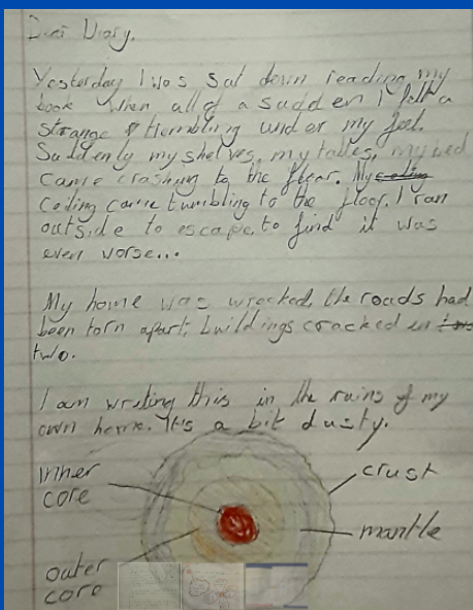 Dear Diary.
Yesterday I was sat down reading my
book when all of a sudden I felt a
strange trembling under my feet.
Suddenly my shelves, my tables, my bed
came crashing to the floor. My
Ceiling came tumbling to the floor. I ran
outside to escape, to find it was
even worse...
My home was wrecked, the roads had
been torn apart, buildings cracked in
two.
I am writing this in the ruins of my
own home. It's a bit dusty.
inner
core
crust
mantle
outer
core